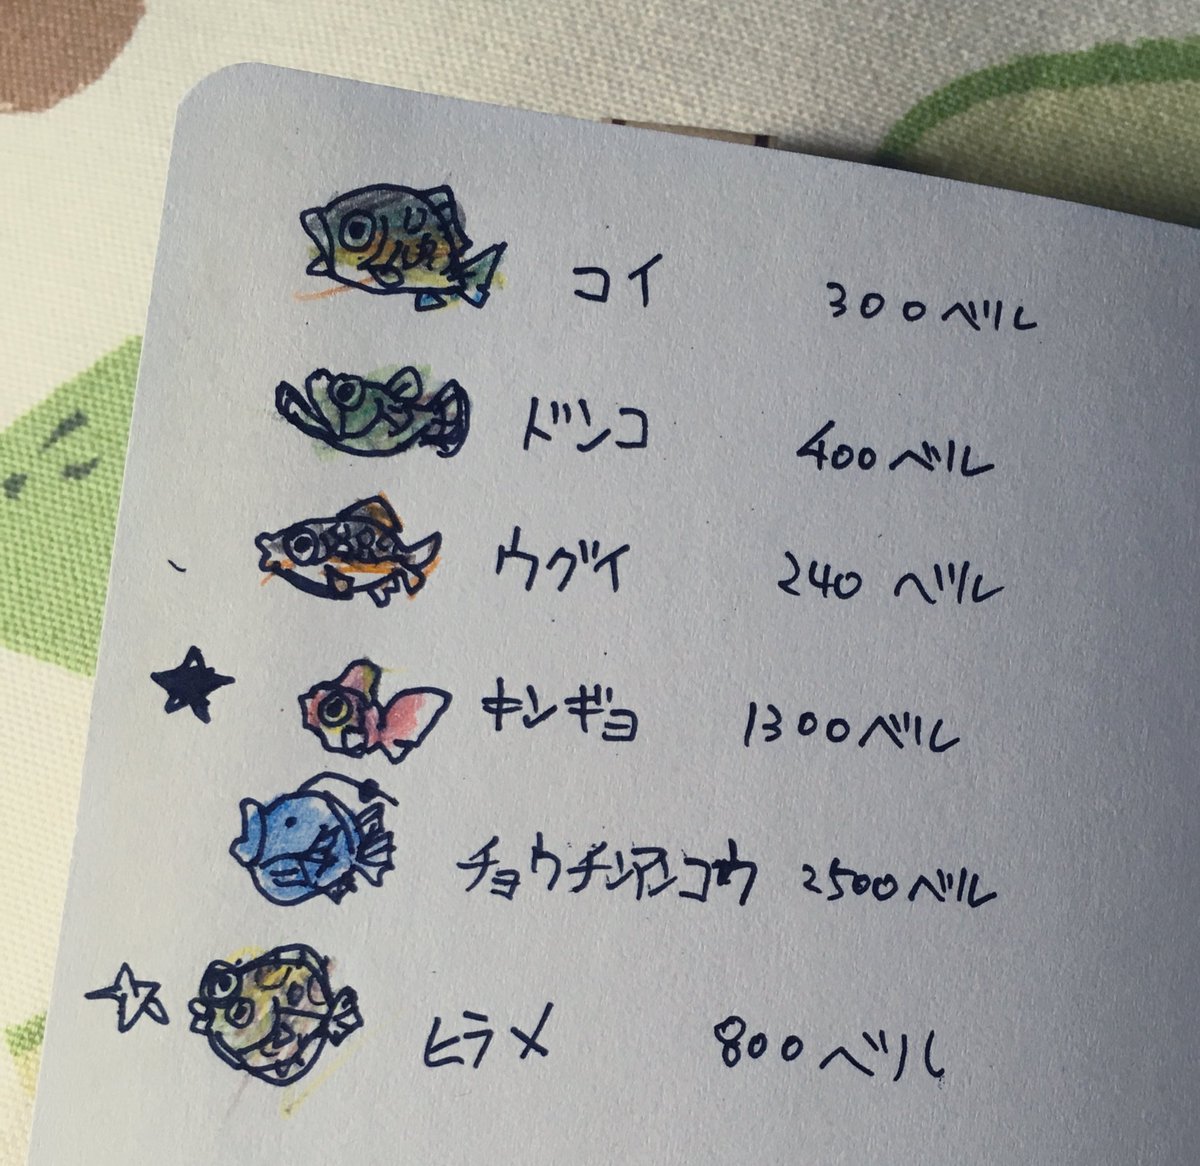 コイ 300ベル
ドンコ 400ベル
ウグイ 240ベル
キンギョ 1300ベル
チョウチンアンコウ 2500ベル
ヒラメ 800ベル